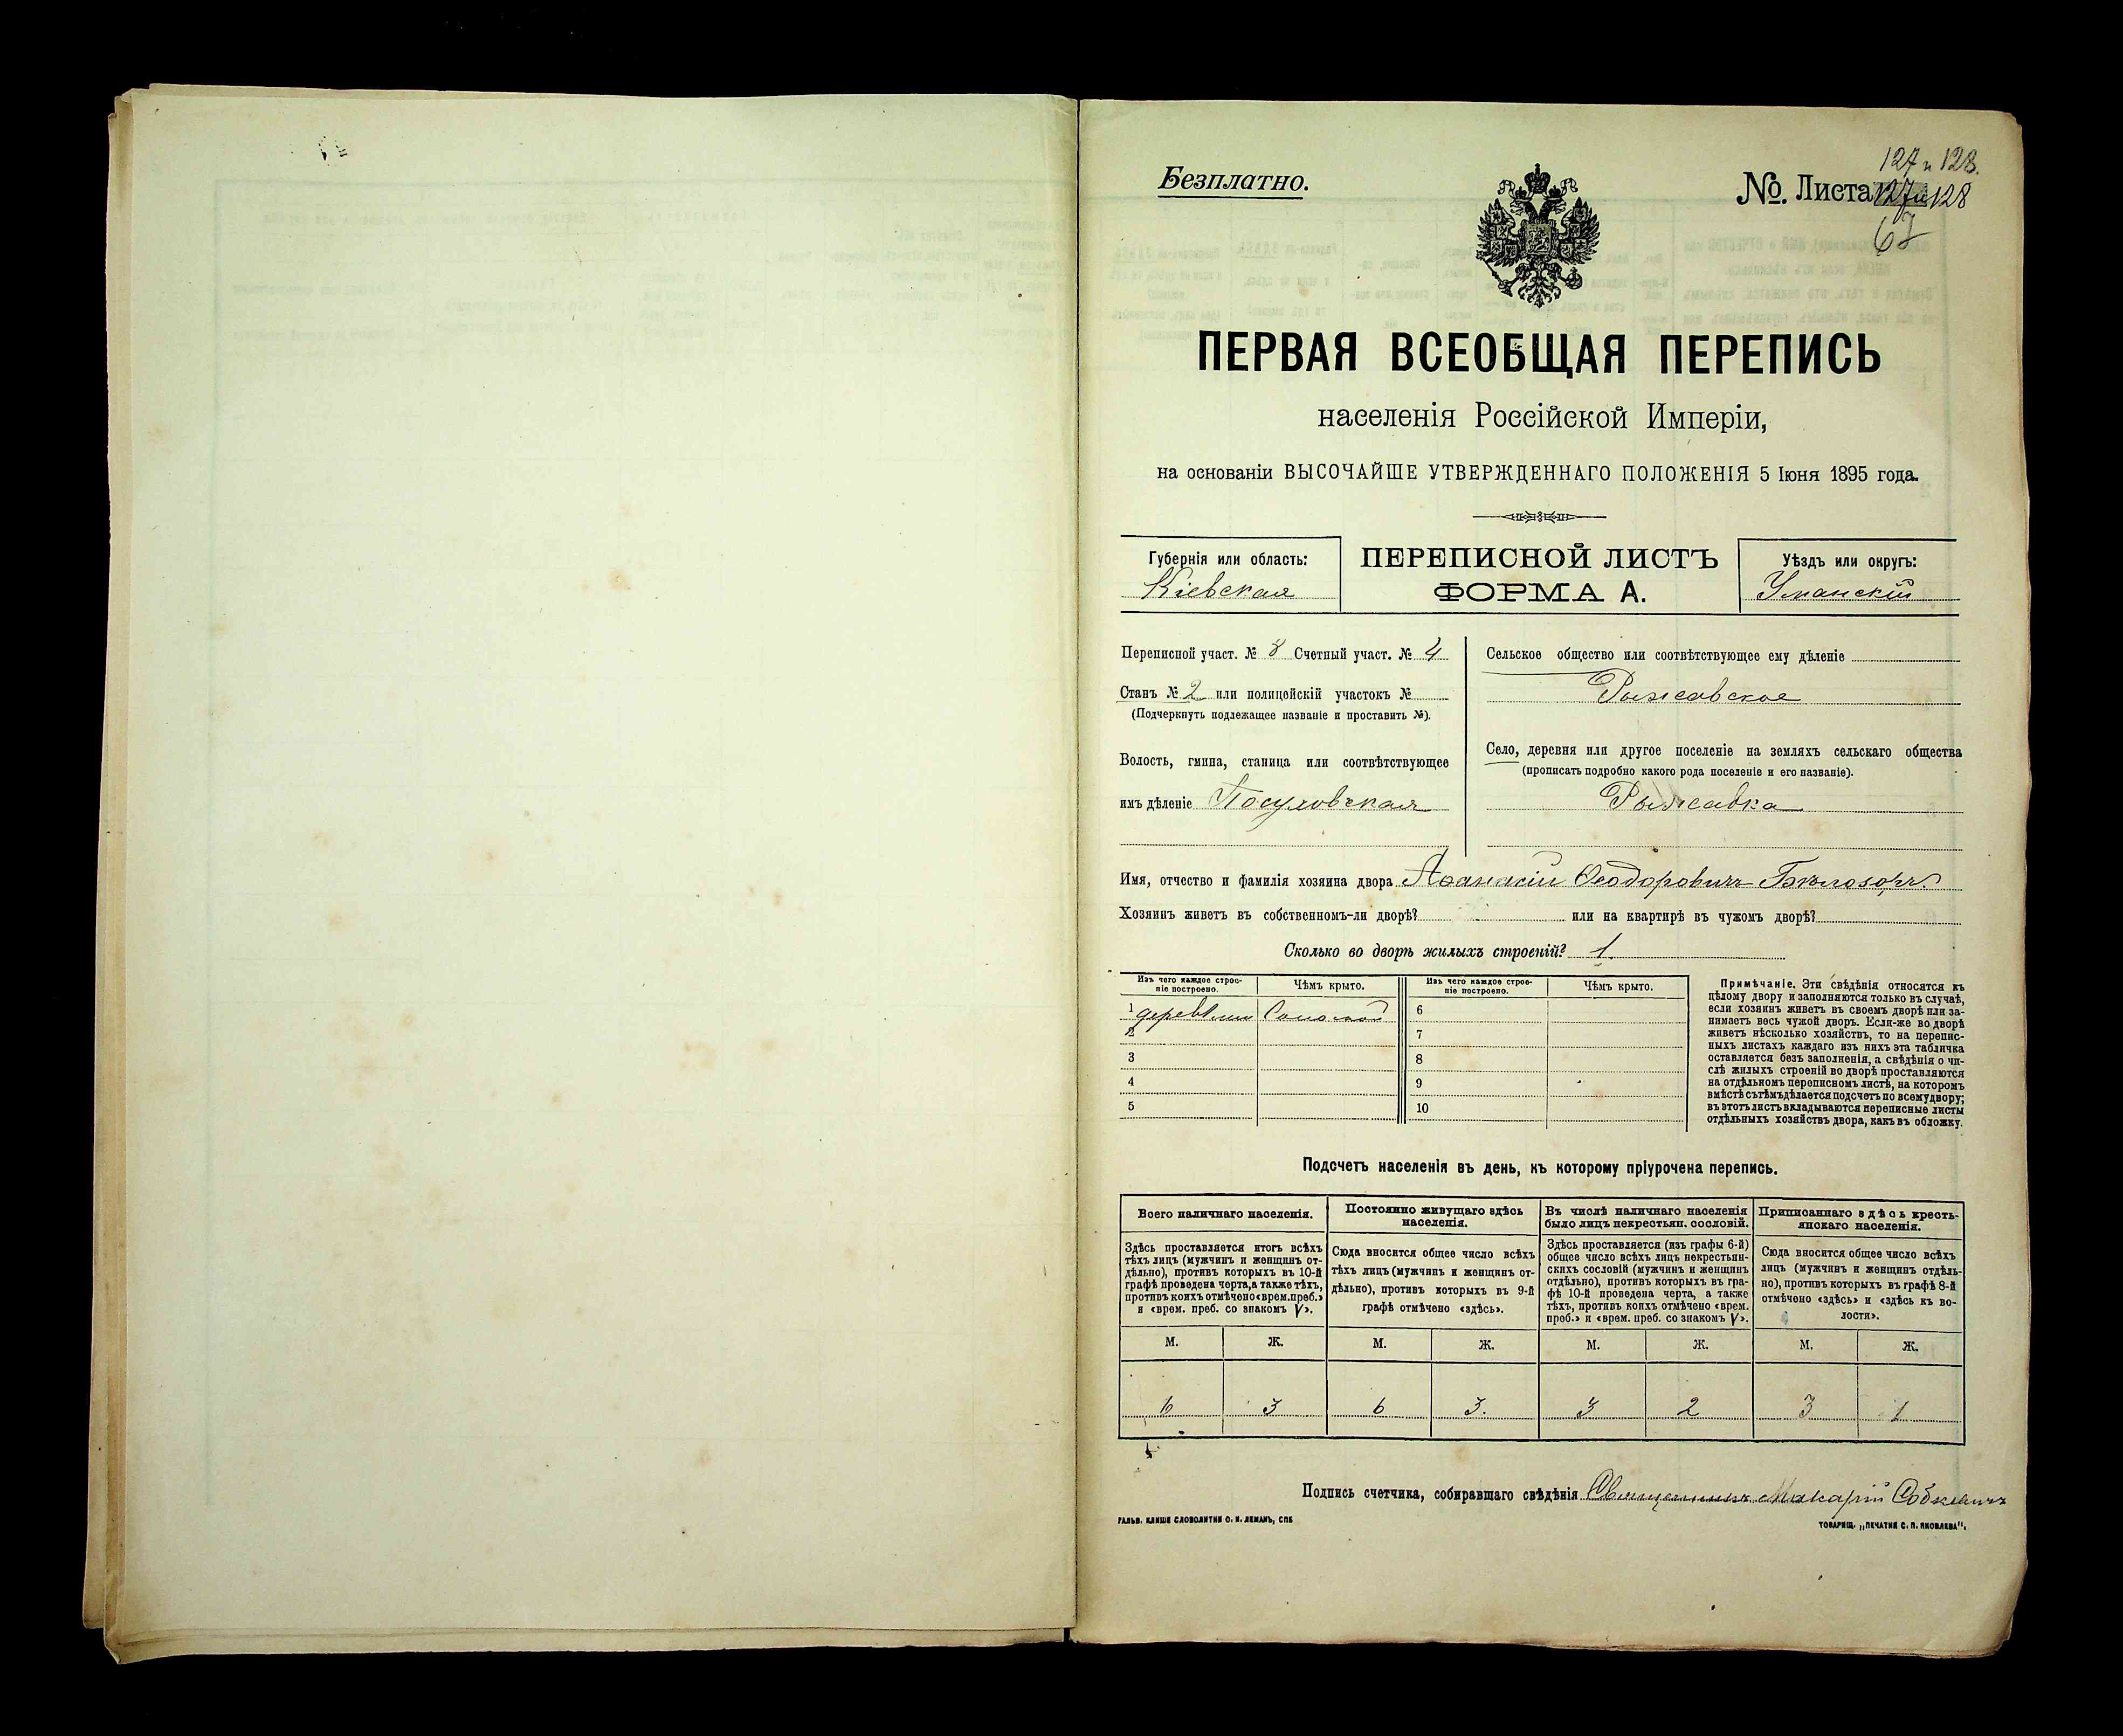 Безплатно.
127 и 128.
№. Листа 127 и 128
67
ПЕРВАЯ ВСЕОБЩАЯ ПЕРЕПИСЬ
населенія Россійской Имперіи,
на основаніи ВЫСОЧАЙШЕ УТВЕРЖДЕННАГО ПОЛОЖЕНІЯ 5 Іюня 1895 года.
Губернія или область:
Кіевская
ПЕРЕПИСНОЙ ЛИСТЪ
ФОРМА А.
Уѣздъ или округъ:
Уманскій
Переписной участ. № 8 Счетный участ. № 4
Станъ № 2 или полицейскій участокъ №
(Подчеркнуть подлежащее названіе и проставить №).
Волость, гмина, станица или соотвѣтствующее
имъ дѣленіе Посуховская
Сельское общество или соотвѣтствующее ему дѣленіе
Рыжавское
Село, деревня или другое поселеніе на земляхъ сельскаго общества
(прописать подробно какого рода поселеніе и его названіе).
Рыжавка
Имя, отчество и фамилія хозяина двора Аѳанасій Ѳеодоровичъ Бѣлозоръ.
Хозяинъ живетъ въ собственномъ-ли дворѣ? или на квартирѣ въ чужомъ дворѣ?
Сколько во дворѣ жилыхъ строеній? 1.
Изъ чего каждое строе-
ніе построено.
Чѣмъ крыто.
Изъ чего каждое строе-
ніе построено.
Чѣмъ крыто.
1 Соломой 6
2 7
3 8
4 9
5 10
Примѣчаніе. Эти свѣдѣнія относятся къ
цѣлому двору и заполняются только въ случаѣ,
если хозяинъ живетъ въ своемъ дворѣ или за-
нимаетъ весь чужой дворъ. Если-же во дворѣ
живетъ нѣсколько хозяйствъ, то на перепис-
ныхъ листахъ каждаго изъ нихъ эта табличка
оставляется безъ заполненія, а свѣдѣнія о чи-
слѣ жилыхъ строеній во дворѣ проставляются
на отдѣльномъ переписномъ листѣ, на которомъ
вмѣстѣ съ тѣмъ дѣлается подсчетъ по всему двору;
въ этотъ листъ вкладываются переписные листы
отдѣльныхъ хозяйствъ двора, какъ въ обложку.
Подсчетъ населенія въ день, къ которому пріурочена перепись.
Всего наличнаго населенія.
Здѣсь проставляется итогъ всѣхъ
тѣхъ лицъ (мужчинъ и женщинъ от-
дѣльно), противъ которыхъ въ 10-й
графѣ проведена черта, а также тѣхъ,
противъ коихъ отмѣчено «врем. преб.»
и «врем. преб. со знакомъ V».
Постоянно живущаго здѣсь
населенія.
Сюда вносится общее число всѣхъ
тѣхъ лицъ (мужчинъ и женщинъ от-
дѣльно), противъ которыхъ въ 9-й
графѣ отмѣчено «здѣсь».
Въ числѣ наличнаго населенія
было лицъ некрестьян. сословій.
Здѣсь проставляется (изъ графы 6-й)
общее число всѣхъ лицъ некрестьян-
скихъ сословій (мужчинъ и женщинъ
отдѣльно), противъ которыхъ въ гра-
фѣ 10-й проведена черта, а также
тѣхъ, противъ коихъ отмѣчено «врем.
преб.» и «врем. преб. со знакомъ V».
Приписаннаго здѣсь кресть-
янскаго населенія.
Сюда вносится общее число всѣхъ
лицъ (мужчинъ и женщинъ отдѣль-
но), противъ которыхъ въ графѣ 8-й
отмѣчено «здѣсь» и «здѣсь къ во-
лости».
М. Ж. М. Ж. М. Ж. М. Ж.
6 3 6 3. 3 2 3 1
Подпись счетчика, собиравшаго свѣдѣнія Священникъ Макарій Собкевичъ
ГАЛЬВ. КЛИШЕ СЛОВОЛИТНИ О. И. ЛЕМАНЪ, СПБ
ТОВАРИЩ. „ПЕЧАТНЯ С. П. ЯКОВЛЕВА".